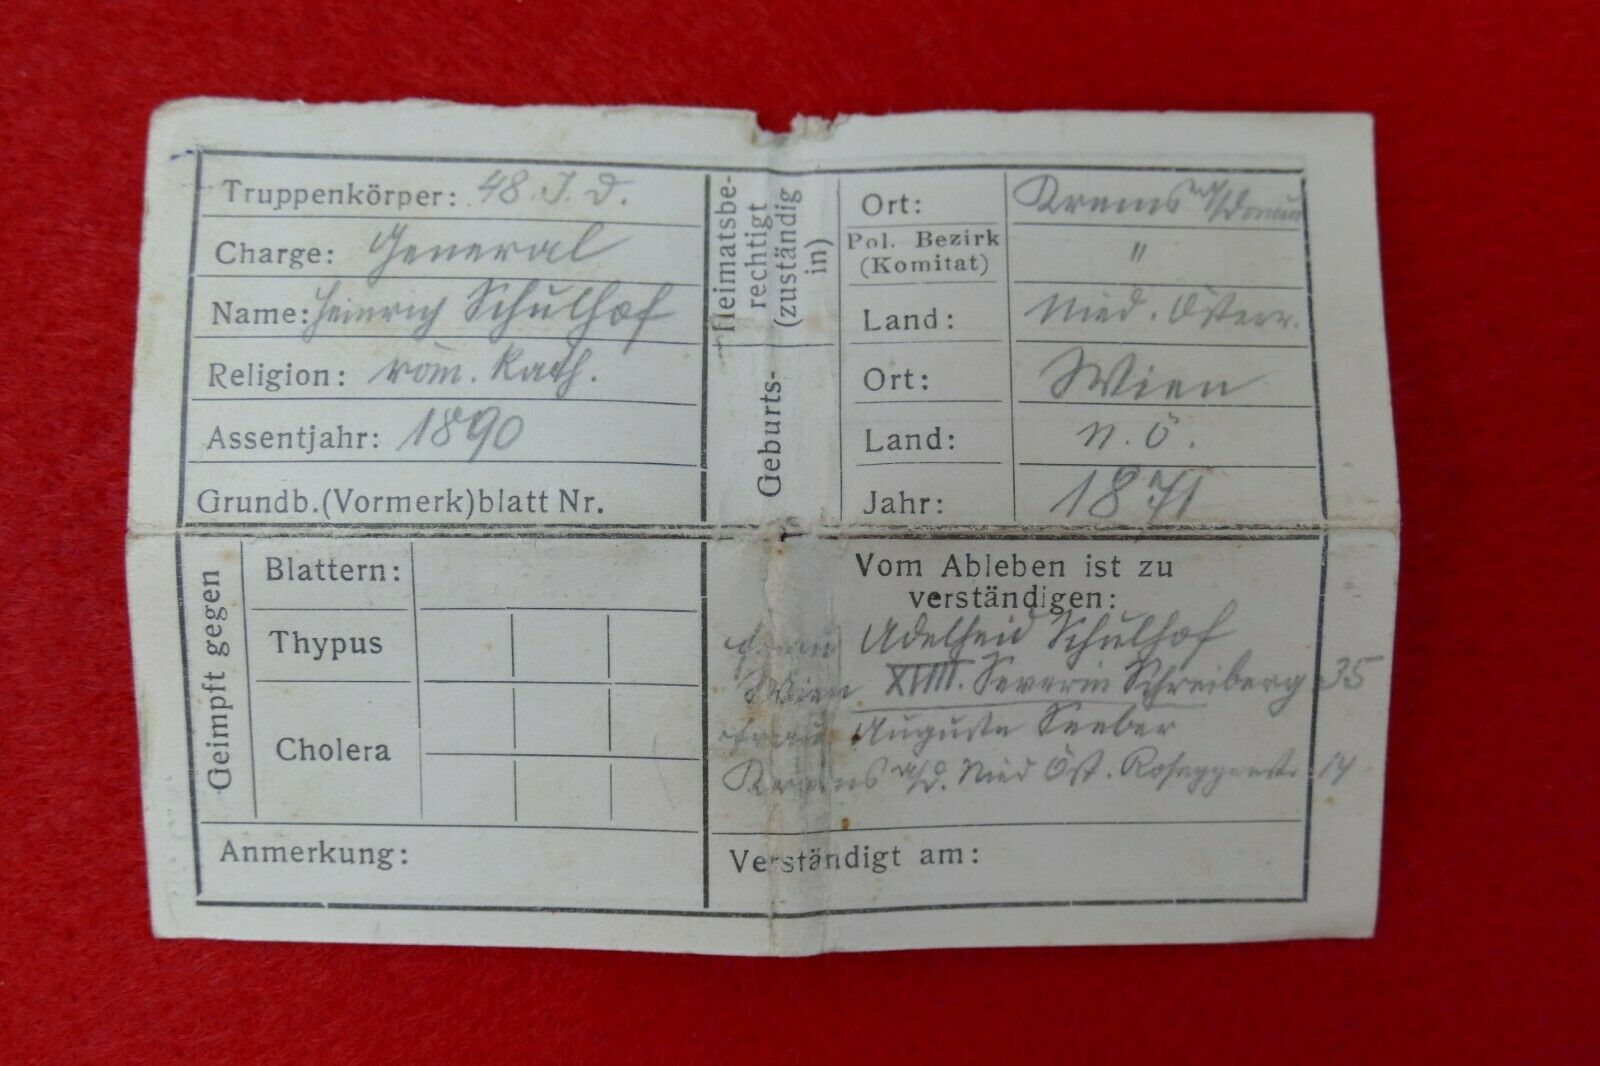 Truppenkörper: 48. I. D.
Charge: General
Name: Heinrich Schulhof
Religion: röm. kath.
Assentjahr: 1890
Grundb.(Vormerk)blatt Nr.
Heimatsbe-
rechtigt
(zuständig
in)
Ort: Krems a/Donau
Pol. Bezirk
(Komitat) "
Land: Nied. Österr.
Geburts-
Ort: Wien
Land: N. Ö.
Jahr: 1871
Geimpft gegen
Blattern:
Thypus
Cholera
Anmerkung:
Vom Ableben ist zu
verständigen:
Frau Adelheid Schulhof
Wien XVIII. Severin Schreiberg 35
Frau Auguste Seeber
Krems a/D. Nied Öst. Roseggerstr. 14
Verständigt am: